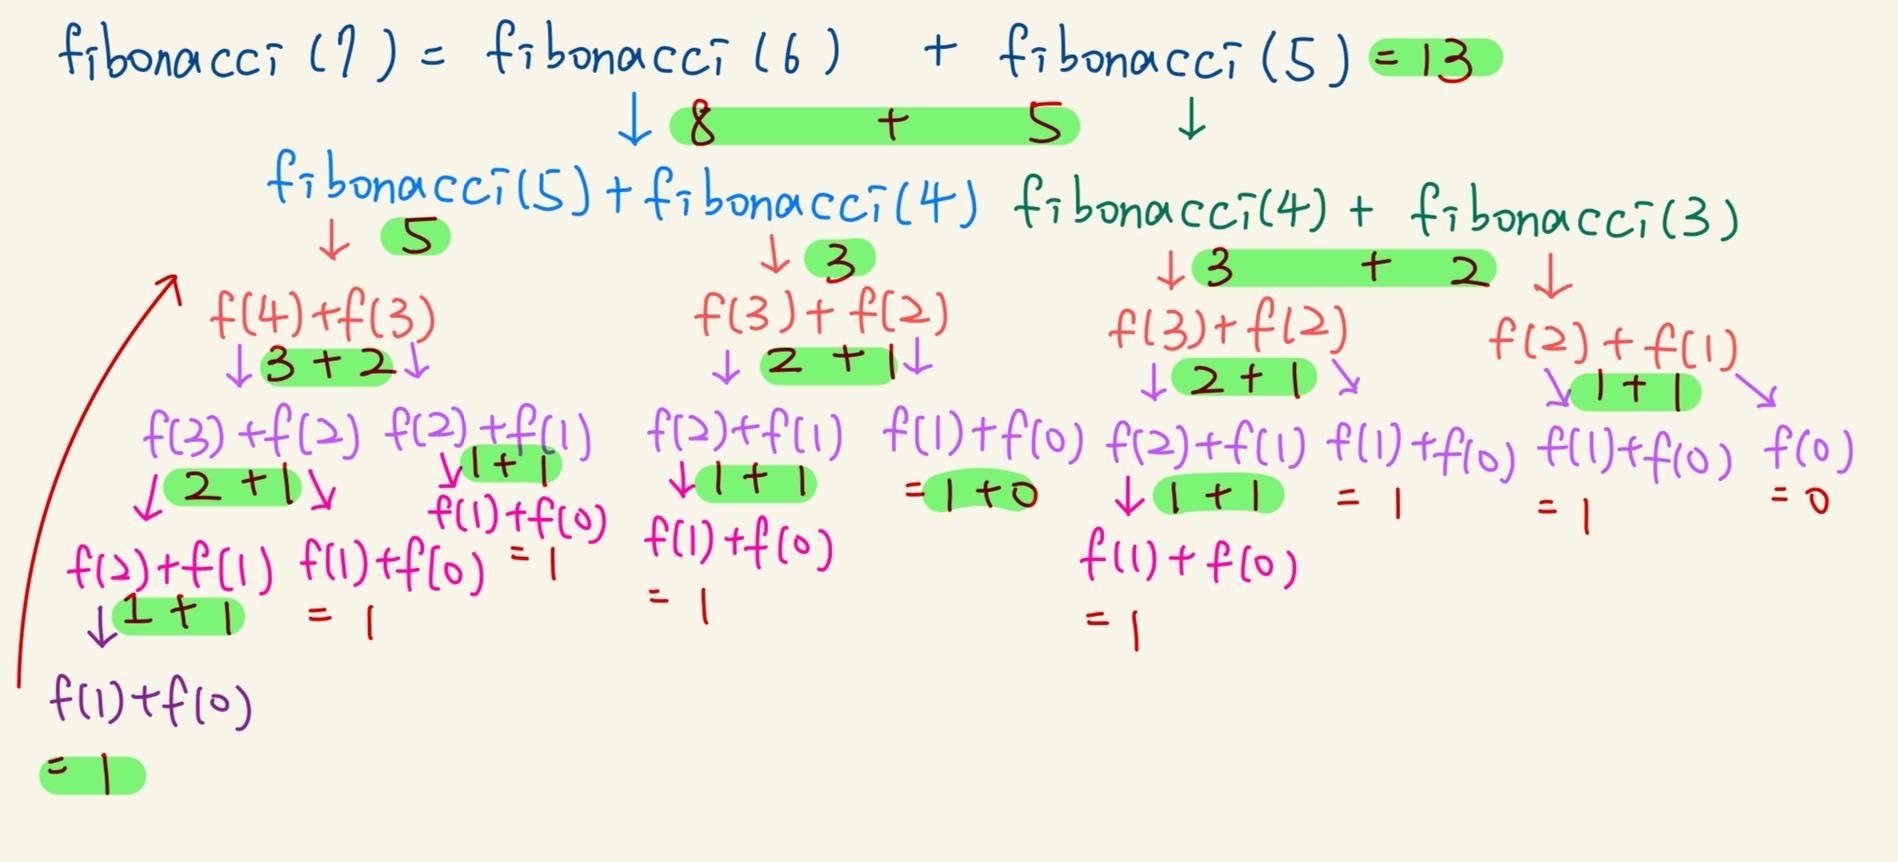 fibonacci (7) = fibonacci (6) + fibonacci (5) = 13
↓ 8 + 5 ↓
fibonacci(5) + fibonacci(4) fibonacci(4) + fibonacci(3)
↓ 5 ↓ 3 ↓ 3 + 2 ↓
f(4)+f(3) f(3)+f(2) f(3)+f(2) f(2)+f(1)
↓ 3+2 ↓ ↓ 2+1 ↓ ↓ 2+1 ↘ ↘ 1+1 ↘
f(3)+f(2) f(2)+f(1) f(2)+f(1) f(1)+f(0) f(2)+f(1) f(1)+f(0) f(1)+f(0) f(0)
↓ 2+1 ↘ ↘ 1+1 ↓ 1+1 = 1+0 ↓ 1+1 = 1 = 1 = 0
f(1)+f(0) f(1)+f(0) f(1)+f(0)
f(2)+f(1) f(1)+f(0) = 1
↓ 1+1 = 1 = 1 = 1
f(1)+f(0)
= 1